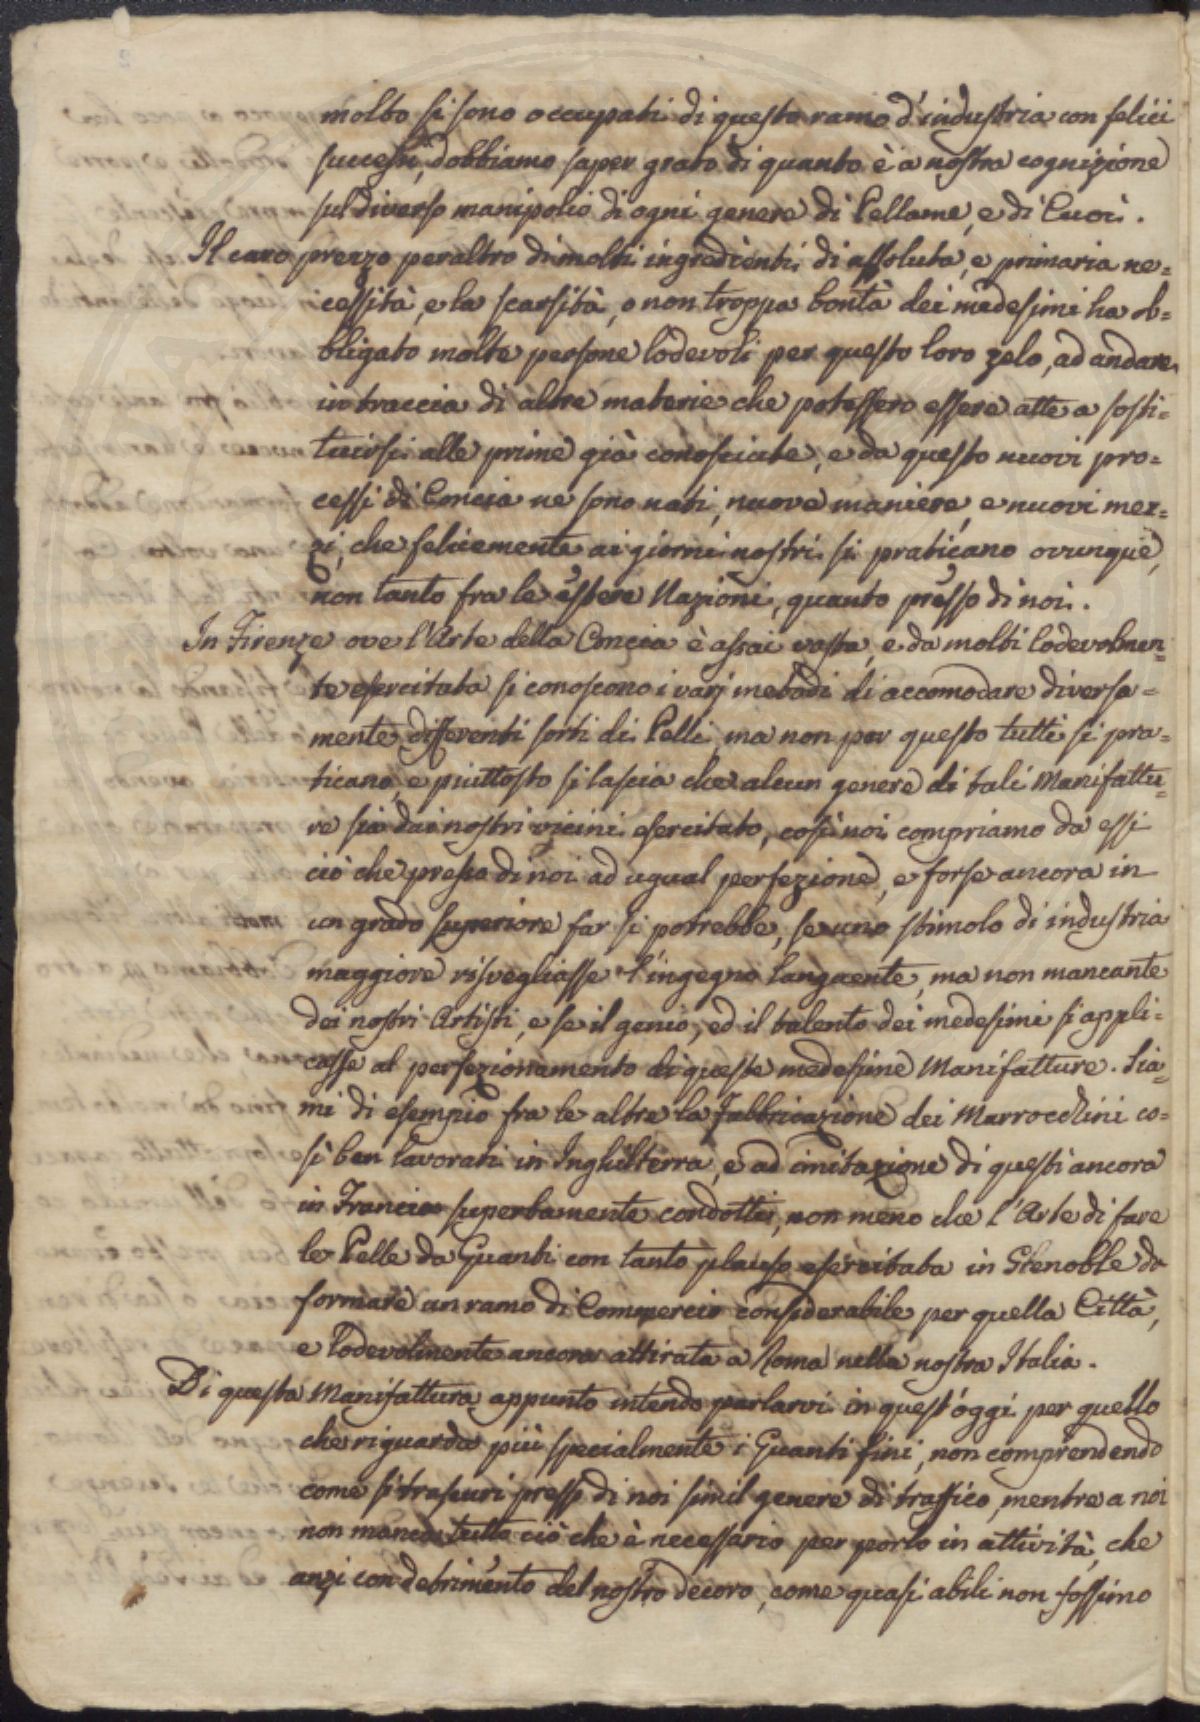 molto si sono occupati di questo ramo d'industria con felici
successi, dobbiamo saper grato di quanto è a nostra cognizione
sul diverso manipolio di ogni genere di Pellame, e di Cuoi.
Il caro prezzo peraltro di molti ingredienti di assoluta, e primaria ne=
cessità, e la scarsità, o non troppa bontà dei medesimi ha ob=
bligato molte persone lodevoli per questo loro zelo, ad andare
in traccia di altre materie che potessero essere atte a sosti=
tuirsi alle prime già conosciute, e da questo nuovi pro=
cessi di Concia ne sono nati, nuove maniere, e nuovi mez=
zi, che felicemente ai giorni nostri si praticano ovunque,
non tanto fra le estere Nazioni, quanto presso di noi.
In Firenze ove l'Arte della Concia è assai vasta, e da molti lodevolmen=
te esercitata si conoscono i varj metodi di accomodare diversa=
mente differenti sorti di Pelli, ma non per questo tutti si pra=
ticano, e piuttosto si lascia che alcun genere di tali Manifattu=
re sia dai nostri vicini esercitato, così noi compriamo da essi
ciò che presso di noi ad ugual perfezione, e forse ancora in
un grado superiore far si potrebbe, se uno stimolo di industria
maggiore risvegliasse l'ingegno languente, ma non mancante
dei nostri Artisti, e se il genio, ed il talento dei medesimi si appli=
casse al perfezionamento di queste medesime Manifatture. Sia=
mi di esempio fra le altre la Fabbricazione dei Marrocchini co=
sì ben lavorati in Inghilterra, e ad imitazione di questi ancora
in Francia superbamente condotti, non meno che l'Arte di fare
le Pelle da Guanti con tanto plauso esercitata in Grenoble da
formare un ramo di Commercio considerabile per quella Città,
e lodevolmente ancora attirata a Roma nella nostra Italia.
Di questa Manifattura appunto intendo parlarvi in quest'oggi per quello
che riguarda più specialmente i Guanti fini, non comprendendo
come si trascuri presso di noi simil genere di traffico, mentre a noi
non manca tutto ciò che è necessario per porlo in attività, che
anzi con detrimento del nostro decoro, come quasi abili non fossimo